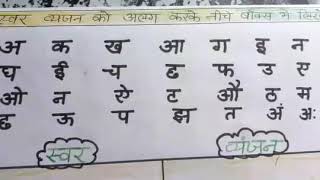 स्वर व्यंजन को अलग करके नीचे बॉक्स में लिखो
अ क ख आ ग इ न
घ ई च ढ फ उ स
ओ न ऐ ट औ ठ म
ढ ऊ प झ त अं अः
स्वर व्यंजन